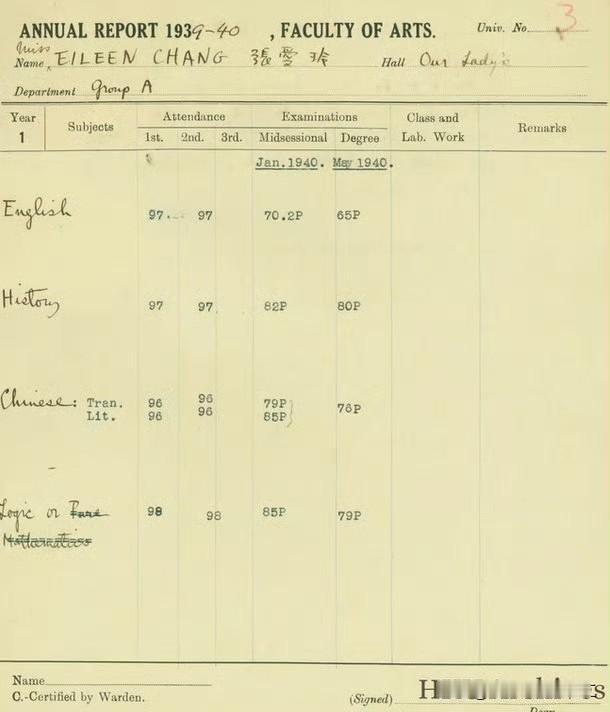 ANNUAL REPORT 1939-40, FACULTY OF ARTS. Univ. No. 3
Miss
Name, EILEEN CHANG 張愛玲 Hall Our Lady's
Department Group A
Year 1 Subjects Attendance 1st. 2nd. 3rd. Examinations Midsessional Degree Class and Lab. Work Remarks
Jan.1940. May 1940.
English 97. 97 70.2P 65P
History 97 97 82P 80P
Chinese: Tran. 96 96 79P 76P
Lit. 96 96 85P
Logic or Pure 98 98 85P 79P
Mathematics
Name
C.-Certified by Warden. (Signed)
Dean.